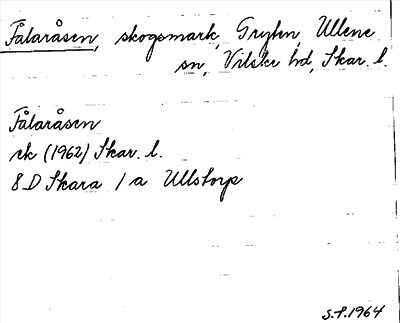 Fålaråsen, skogsmark, Gryten, Ullene
sn, Vilske hd, Skar. l.
Fålaråsen
ek (1962) Skar. l.
8D Skara 1 a Ullstorp
S.F. 1964